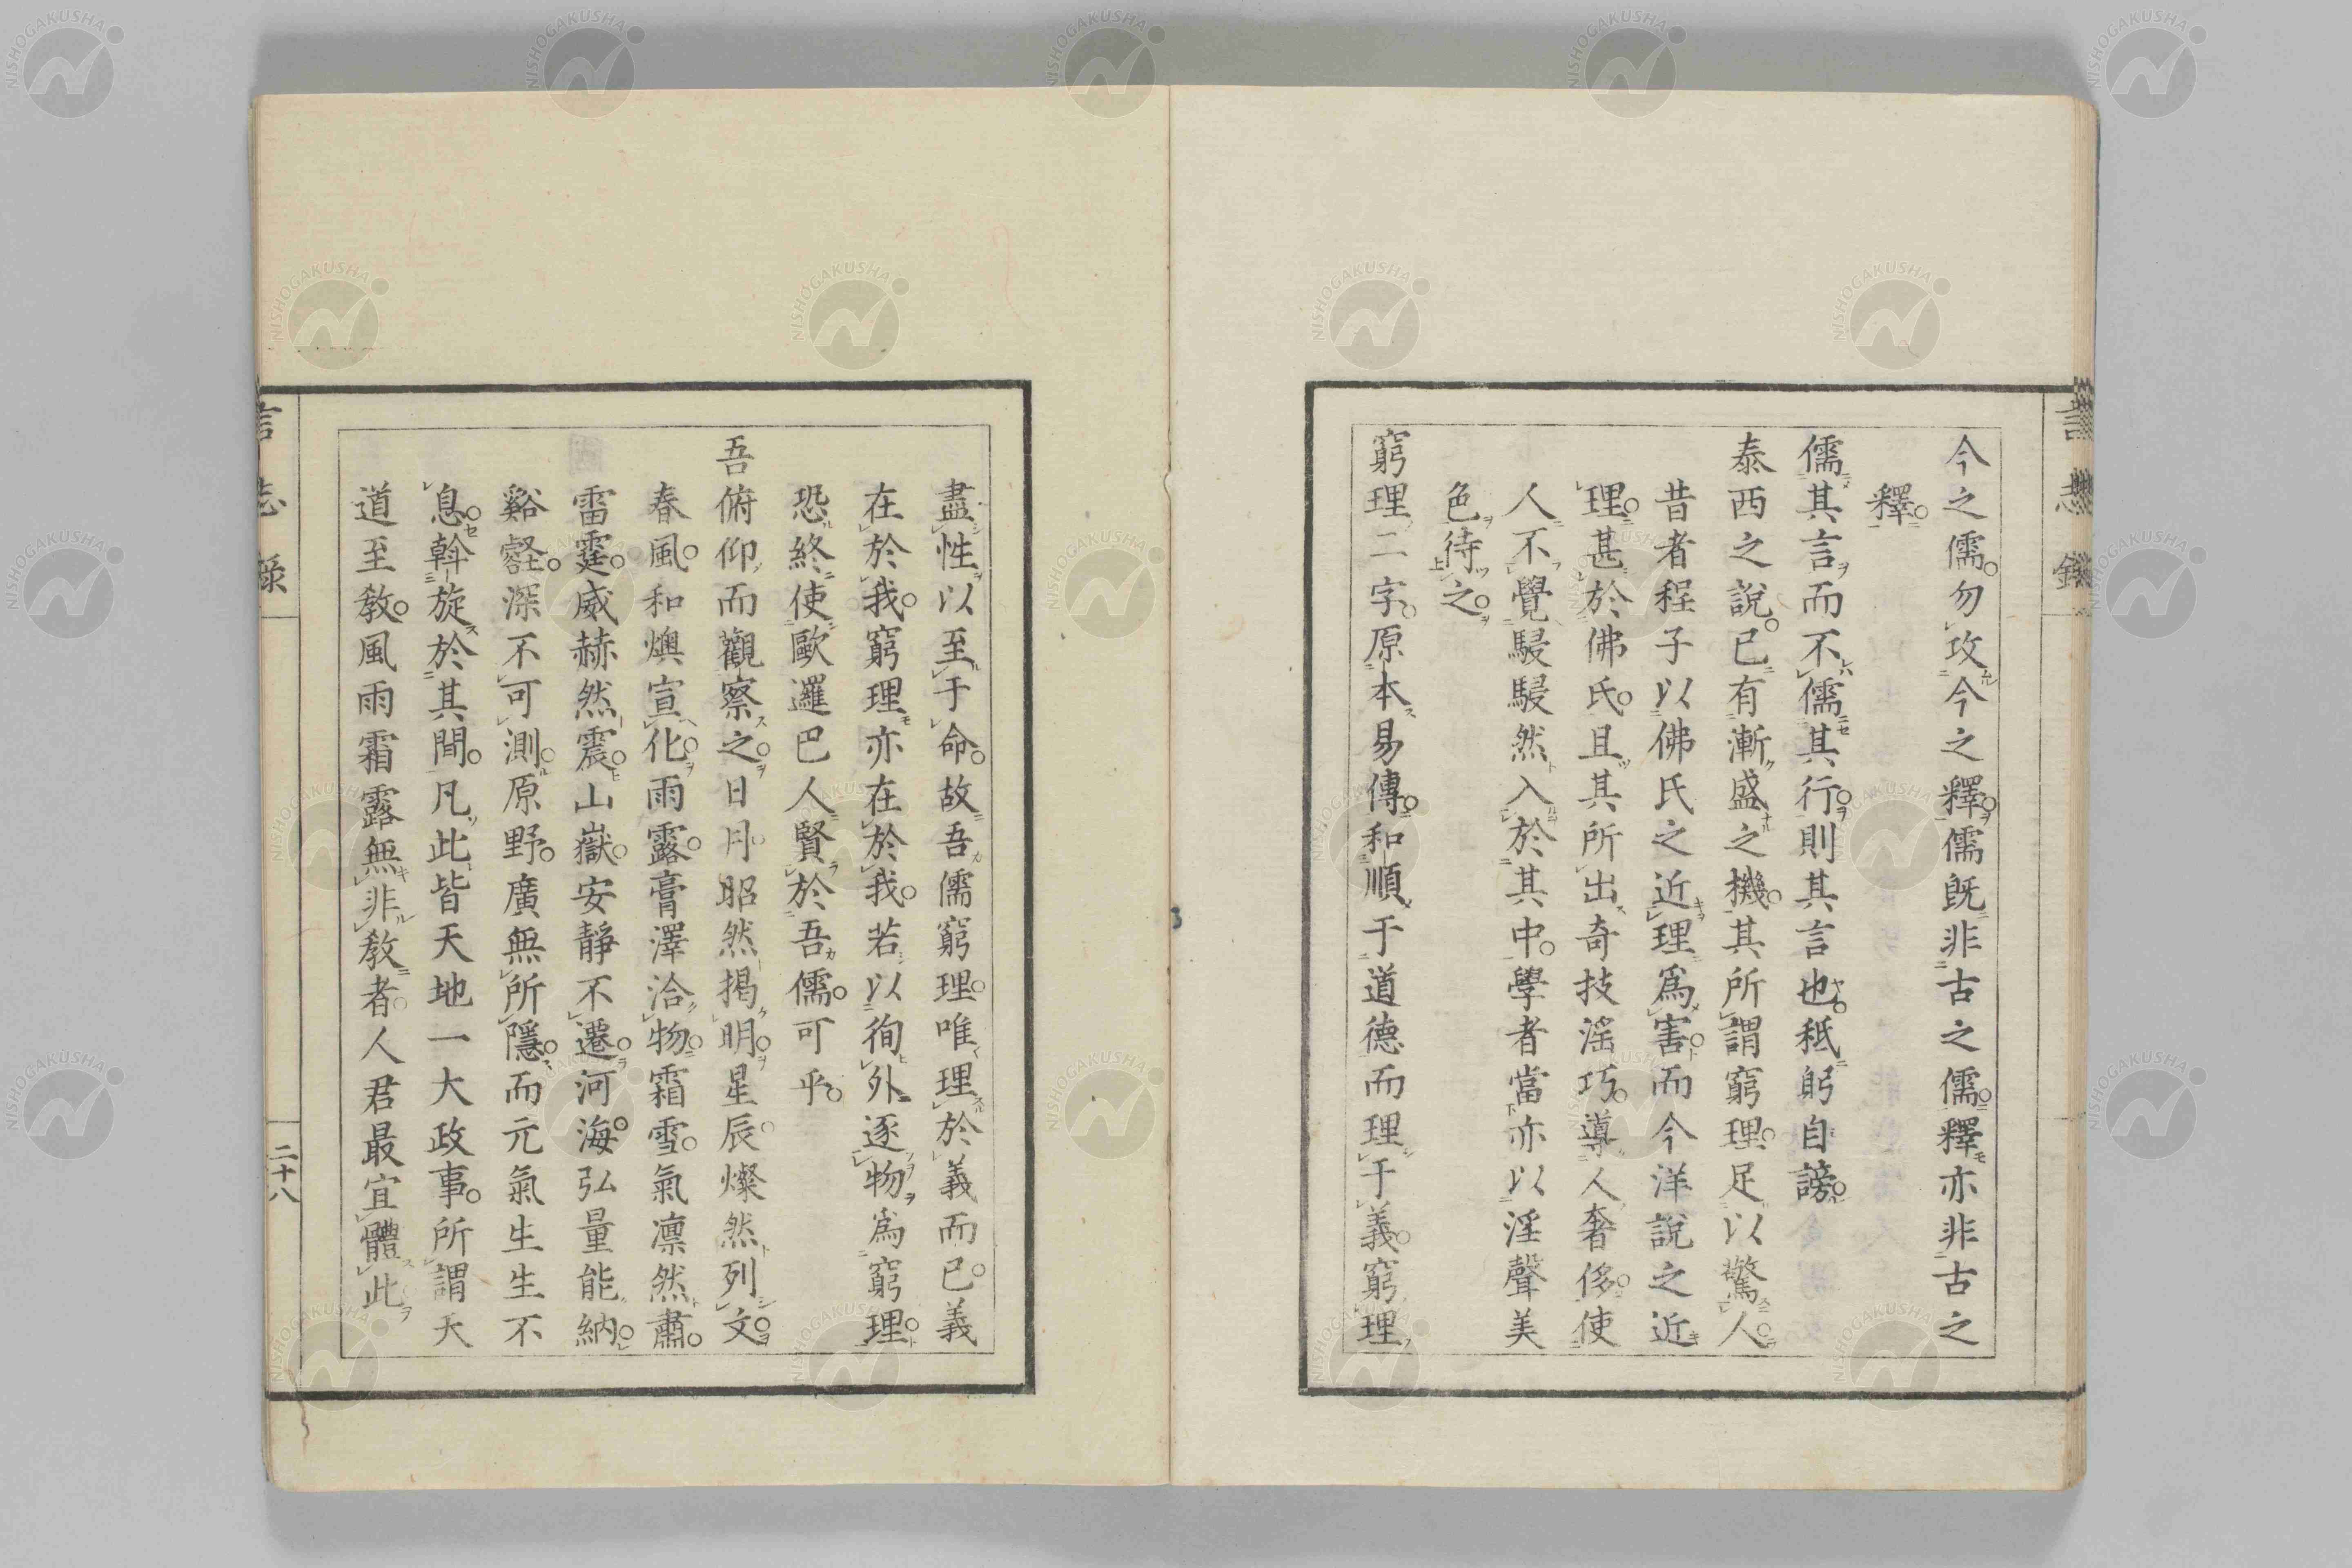 言志録
今之儒勿攻今之釋儒既非古之儒釋亦非古之
釋
儒其言而不儒其行則其言也秪躬自謗
泰西之說已有漸盛之機其所謂窮理足以驚人
昔者程子以佛氏之近理爲害而今洋說之近
理甚於佛氏且其所出奇技滛巧導人奢侈使
人不覺駸駸然入於其中學者當亦以淫聲美
色待之
窮理二字原本易傳和順于道德而理于義窮理
盡性以至于命故吾儒窮理唯理於義而已義
在於我窮理亦在於我若以徇外逐物爲窮理
恐終使歐邏巴人賢於吾儒可乎
吾俯仰而觀察之日月昭然揭明星辰燦然列文
春風和燠宣化雨露膏澤洽物霜雪氣凛然肅
雷霆威赫然震山嶽安靜不遷河海弘量能納
谿壑深不可測原野廣無所隱而元氣生生不
息斡旋於其間凡此皆天地一大政事所謂天
道至教風雨霜露無非教者人君最宜體此
言志録
二十八
NISHOGAKUSHA